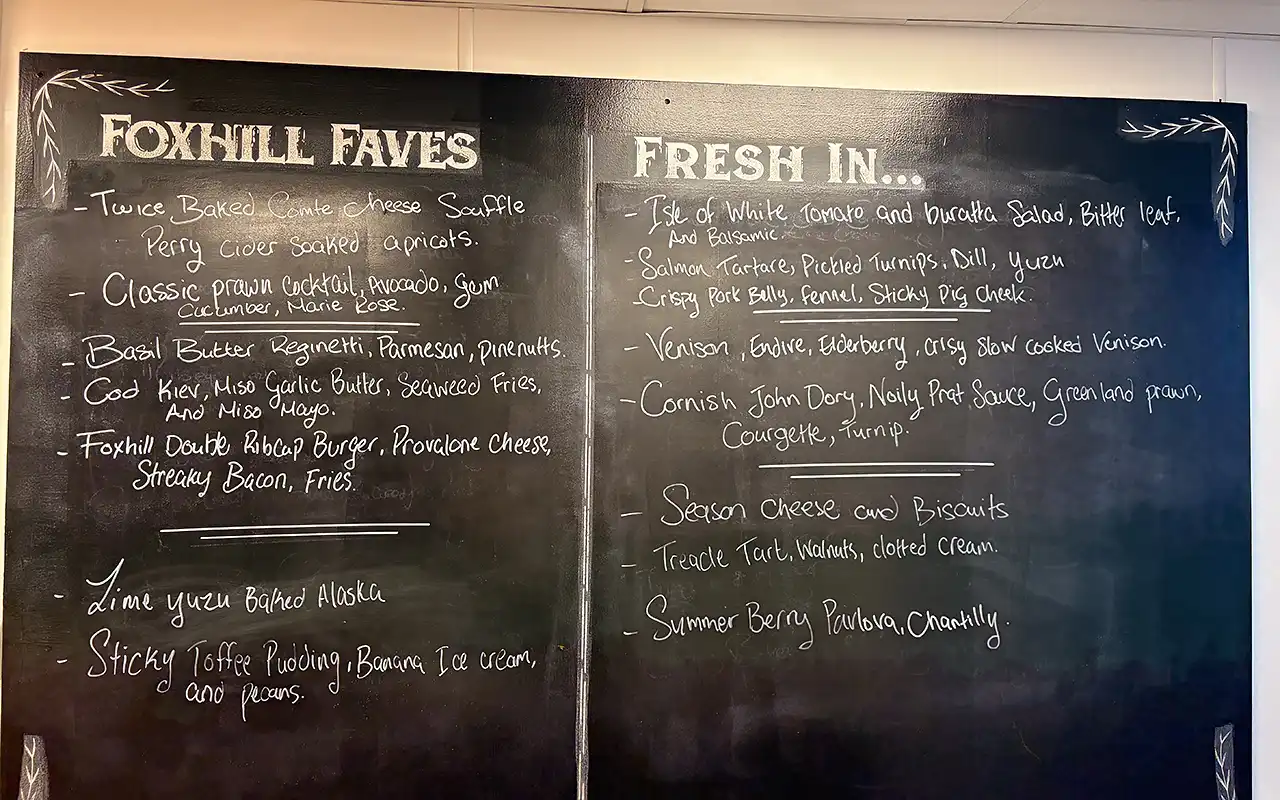 FOXHILL FAVES
- Twice Baked Comte Cheese Souffle
Perry Cider soaked apricots.
- Classic prawn Cocktail, Avocado, Gem
Cucumber, Marie Rose.
- Basil Butter Reginetti, Parmesan, pinenutts.
- Cod Kiev, Miso Garlic Butter, Seaweed Fries,
And Miso Mayo.
- Foxhill Double Ribcap Burger, Provalone Cheese,
Streaky Bacon, Fries.
- Lime yuzu Baked Alaska
- Sticky Toffee Pudding, Banana Ice cream,
and pecans.
FRESH IN...
- Isle of White Tomato and buratta Salad, Bitter leaf,
And Balsamic.
- Salmon Tartare, Pickled Turnips, Dill, yuzu
- Crispy Pork Belly, fennel, Sticky Pig Cheek.
- Venison, Endive, Elderberry, crisy slow cooked Venison.
- Cornish John Dory, Noily Prat Sauce, Greenland prawn,
Courgette, Turnip.
- Season Cheese and Biscuits
- Treacle Tart, Walnuts, clotted cream.
- Summer Berry Pavlova, Chantilly.